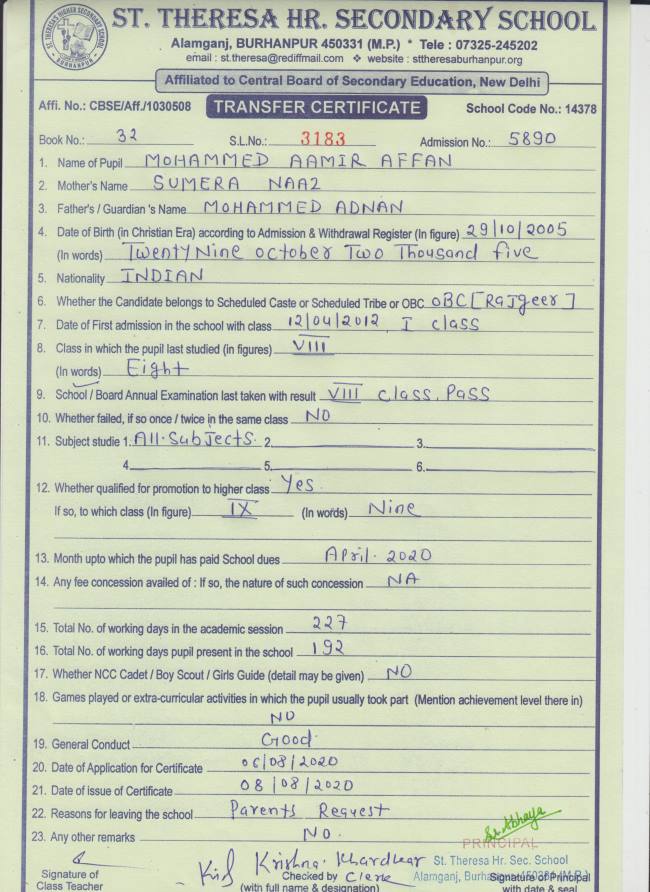 ST. THERESA'S HIGHER SECONDARY SCHOOL
BURHANPUR
ST. THERESA HR. SECONDARY SCHOOL
Alamganj, BURHANPUR 450331 (M.P.) * Tele : 07325-245202
email : st.theresa@rediffmail.com ❖ website : sttheresaburhanpur.org
Affiliated to Central Board of Secondary Education, New Delhi
Affi. No.: CBSE/Aff./1030508 TRANSFER CERTIFICATE School Code No.: 14378
Book No.: 32 S.L.No.: 3183 Admission No.: 5890
1. Name of Pupil MOHAMMED AAMIR AFFAN
2. Mother's Name SUMERA NAAZ
3. Father's / Guardian 's Name MOHAMMED ADNAN
4. Date of Birth (in Christian Era) according to Admission & Withdrawal Register (In figure) 29/10/2005
(In words) Twenty Nine october Two Thousand five
5. Nationality INDIAN
6. Whether the Candidate belongs to Scheduled Caste or Scheduled Tribe or OBC OBC [Rajgeer]
7. Date of First admission in the school with class 12/04/2012, I class
8. Class in which the pupil last studied (in figures) VIII
(In words) Eight
9. School / Board Annual Examination last taken with result VIII class, Pass
10. Whether failed, if so once / twice in the same class NO
11. Subject studie 1. All Subjects 2. 3.
4. 5. 6.
12. Whether qualified for promotion to higher class Yes
If so, to which class (In figure) IX (In words) Nine
13. Month upto which the pupil has paid School dues April. 2020
14. Any fee concession availed of : If so, the nature of such concession NA
15. Total No. of working days in the academic session 227
16. Total No. of working days pupil present in the school 192
17. Whether NCC Cadet / Boy Scout / Girls Guide (detail may be given) NO
18. Games played or extra-curricular activities in which the pupil usually took part (Mention achievement level there in)
NO
19. General Conduct Good
20. Date of Application for Certificate 06/08/2020
21. Date of issue of Certificate 08/08/2020
22. Reasons for leaving the school Parents Request
23. Any other remarks NO.
Sr. Abhaya
PRINCIPAL
Krishna Khardkar St. Theresa Hr. Sec. School
Signature of Checked by Clerk Alamganj, Burhanpur 450331 (M.P.) Signature of Principal
Class Teacher (with full name & designation) with date & seal